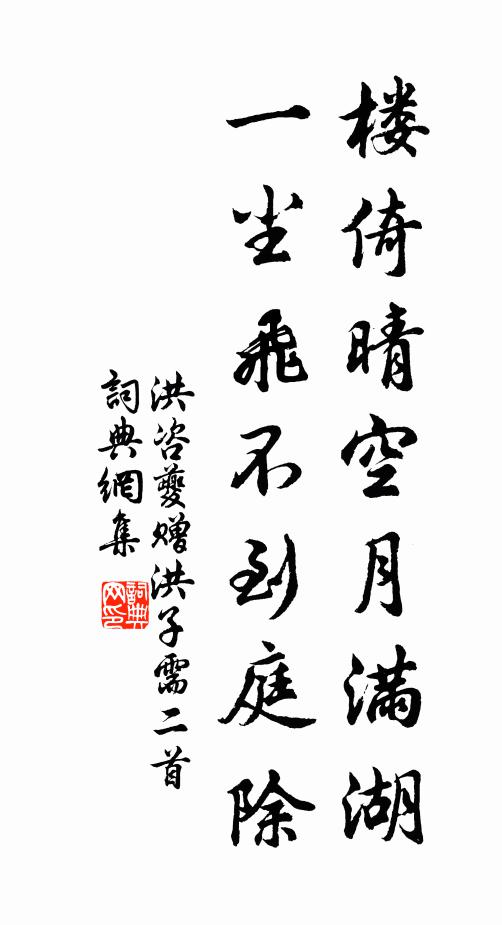 楼倚晴空月满湖
一尘飛不到庭除
洪咨夔赠洪子需二首
詞典網集
詞典
网印